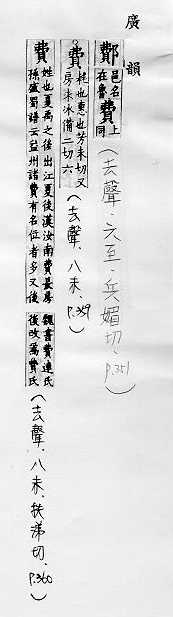 廣韻
鄪
邑名
在魯
費
上
同
(去聲.六至.兵媚切.p.351)
費
耗也惠也芳未切又
房未冰備二切六
(去聲.八未.p.359)
費
姓也夏禹之後出江夏後漢汝南費長房
孫盛蜀譜云益州諸費有名位者多又後
魏書費連氏
後改為費氏
(去聲.八未.扶涕切.p.360)